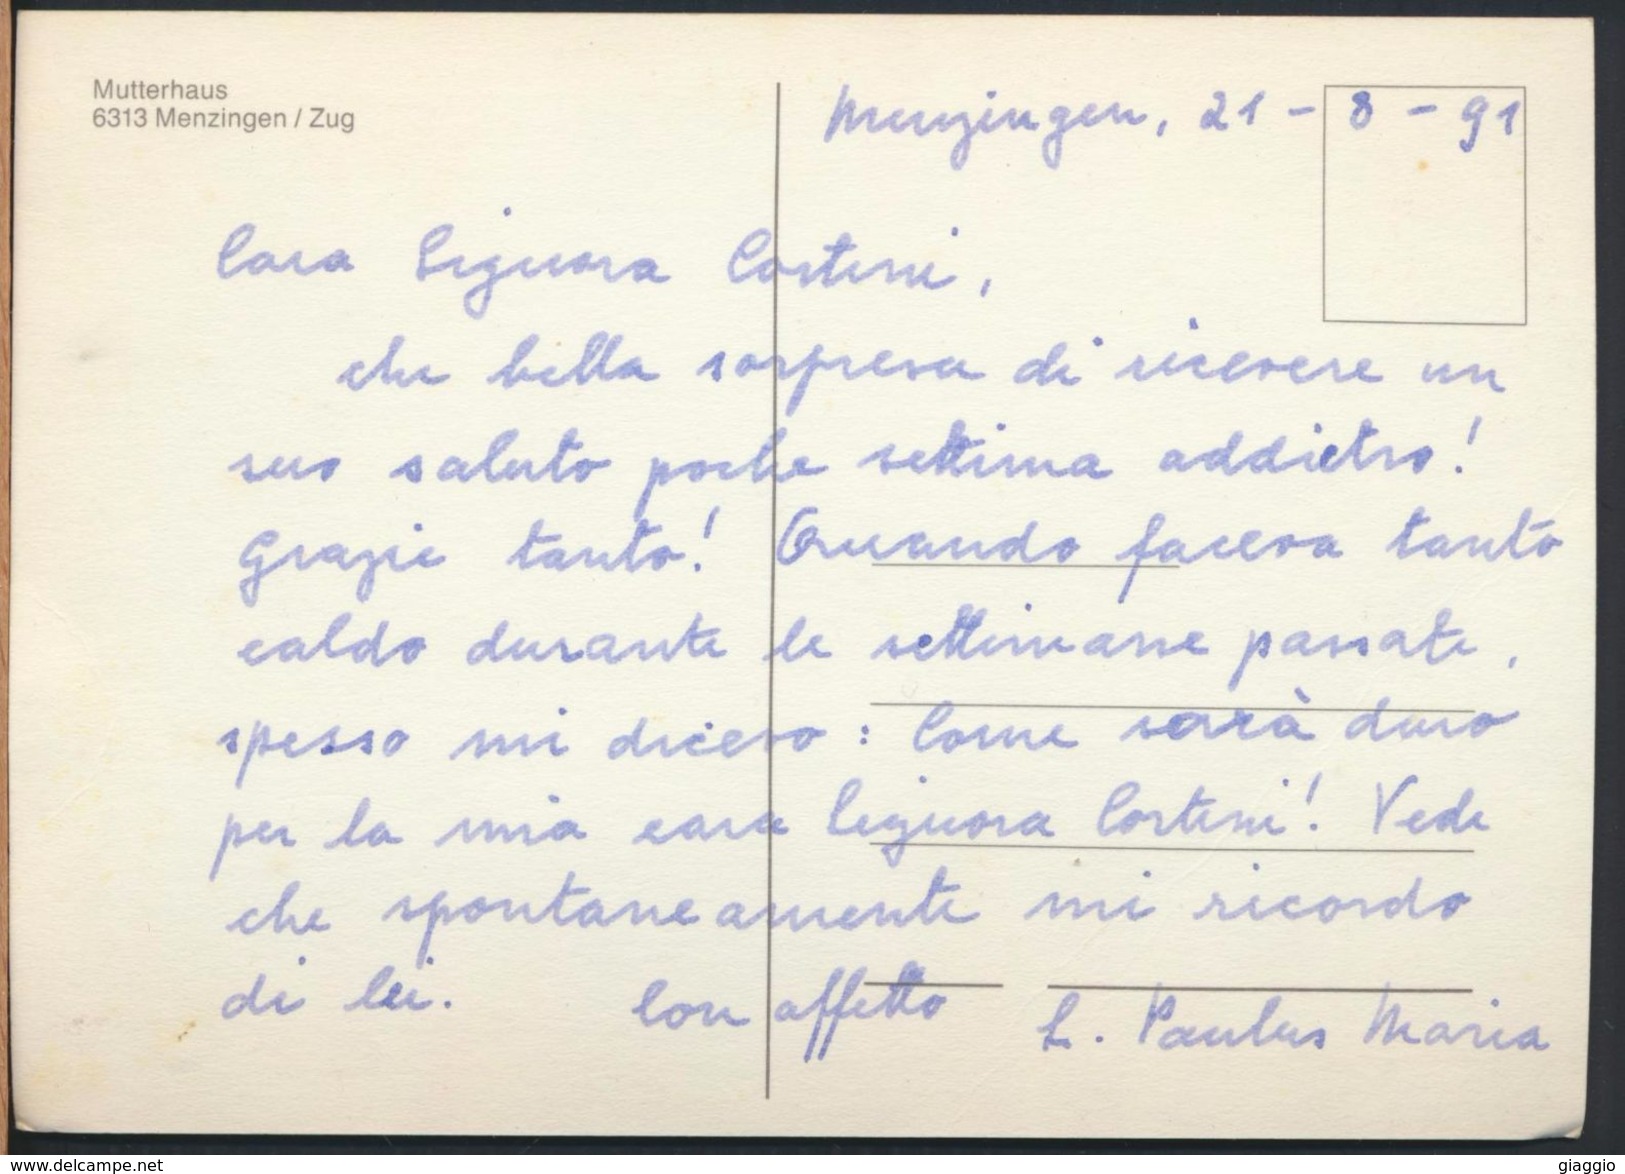 Mutterhaus
6313 Menzingen / Zug
Menzingen, 21 - 8 - 91
Cara Signora Corteni,
che bella sorpresa di ricevere un
suo saluto poche settima addietro!
Grazie tanto! Quando faceva tanto
caldo durante le settimane passate,
spesso mi dicevo: Come sarà duro
per la mia cara Signora Corteni! Vede
che spontaneamente mi ricordo
di lei. Con affetto
S. Paulus Maria
www.delcampe.net
giaggio